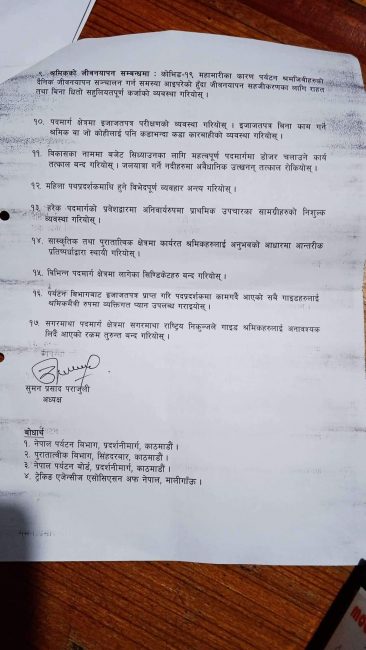 ९. श्रमिकको जीवनयापन सम्बन्धमा : कोभिड-१९ महामारीका कारण पर्यटन श्रमजिवीहरुको
दैनिक जीवनयापन सञ्चालन गर्न समस्या आइपरेको हुँदा जीवनयापन सहजीकरणका लागि राहत
तथा बिना धितो सहुलियतपूर्ण कर्जाको व्यवस्था गरियोस् ।
१०. पदमार्ग क्षेत्रमा इजाजतपत्र परीक्षणको व्यवस्था गरियोस् । इजाजतपत्र बिना काम गर्ने
श्रमिक वा जो कोहीलाई पनि कडाभन्दा कडा कारबाहीको व्यवस्था गरियोस् ।
११. विकासका नाममा बजेट सिध्याउनका लागि महत्वपूर्ण पदमार्गमा डोजर चलाउने कार्य
तत्काल बन्द गरियोस् । जलयात्रा गर्ने नदीहरुमा अवैधानिक उत्खनन् तत्काल रोकियोस् ।
१२. महिला पथप्रदर्शकमाथि हुने विभेदपूर्ण व्यवहार अन्त्य गरियोस् ।
१३. हरेक पदमार्गको प्रवेशद्वारमा अनिवार्यरुपमा प्राथमिक उपचारका सामग्रीहरुको निशुल्क
व्यवस्था गरियोस् ।
१४. सांस्कृतिक तथा पुरातात्विक क्षेत्रमा कार्यरत श्रमिकहरुलाई अनुभवको आधारमा आन्तरीक
प्रतिष्पर्धाद्वारा स्थायी गरियोस् ।
१५. विभिन्न पदमार्ग क्षेत्रमा लागेका सिण्डिकेटहरु बन्द गरियोस् ।
१६. पर्यटन विभागबाट इजाजतपत्र प्राप्त गरि पदप्रदर्शकमा कामगर्दै आएको सबै गाइडहरुलाई
श्रमिकमैत्री रुपमा व्यक्तिगत प्यान उपलब्ध गराइयोस् ।
१७. सगरमाथा पदमार्ग क्षेत्रमा सगरमाथा राष्ट्रिय निकुञ्जले गाइड श्रमिकहरुलाई अनावश्यक
लिदैं आएको रकम तुरुन्त बन्द गरियोस् ।
सुमन प्रसाद पराजुली
अध्यक्ष
बोधार्थ
१. नेपाल पर्यटन विभाग, प्रदर्शनीमार्ग, काठमाडौं ।
२. पुरातात्वीक विभाग, सिंहदरबार, काठमाडौं ।
३. नेपाल पर्यटन बोर्ड, प्रदर्शनीमार्ग, काठमाडौं ।
४. ट्रेकिङ एजेन्सीज एसोसिएसन अफ नेपाल, मालीगाँऊ ।